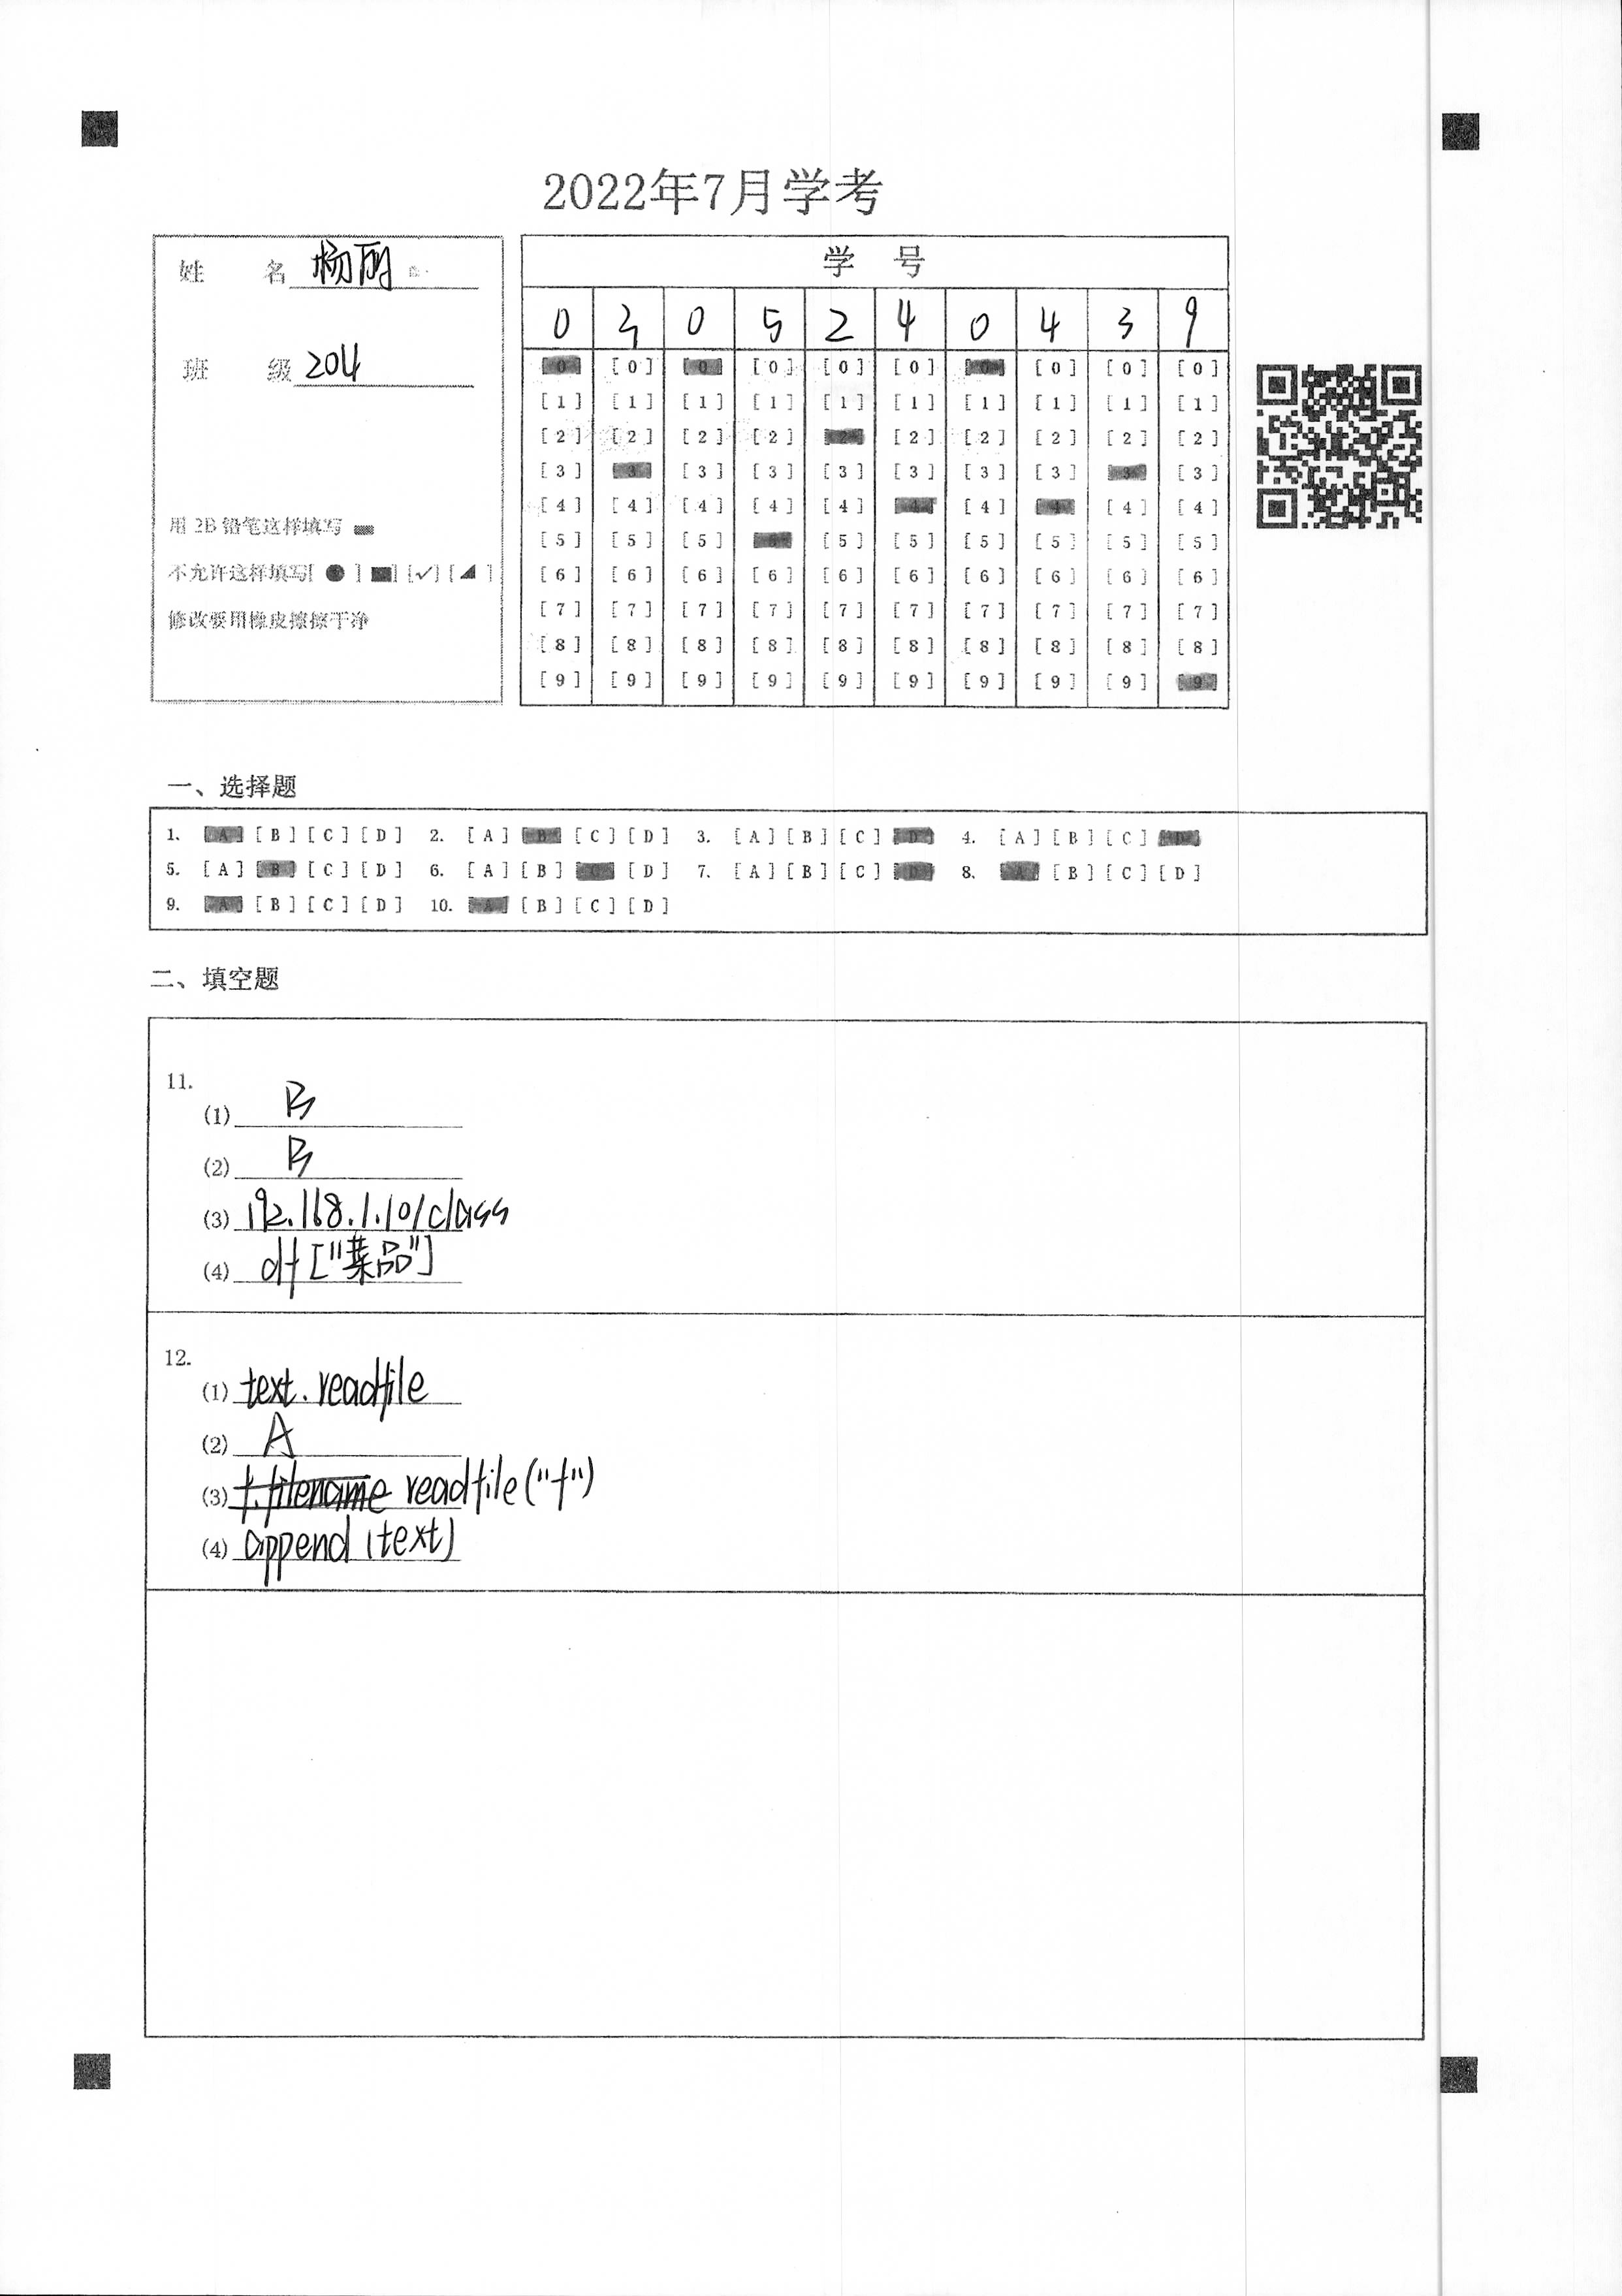 2022年7月学考
姓 名 杨丽
班 级 204
用2B铅笔这样填写
不允许这样填写[ ● ] [■] [✓] [◢ ]
修改要用橡皮擦擦干净
学 号
0 3 0 5 2 4 0 4 3 9
[0] [0] [0] [0] [0] [0] [0] [0] [0] [0]
[1] [1] [1] [1] [1] [1] [1] [1] [1] [1]
[2] [2] [2] [2] [2] [2] [2] [2] [2] [2]
[3] [3] [3] [3] [3] [3] [3] [3] [3] [3]
[4] [4] [4] [4] [4] [4] [4] [4] [4] [4]
[5] [5] [5] [5] [5] [5] [5] [5] [5] [5]
[6] [6] [6] [6] [6] [6] [6] [6] [6] [6]
[7] [7] [7] [7] [7] [7] [7] [7] [7] [7]
[8] [8] [8] [8] [8] [8] [8] [8] [8] [8]
[9] [9] [9] [9] [9] [9] [9] [9] [9] [9]
一、选择题
1. [A] [B] [C] [D] 2. [A] [B] [C] [D] 3. [A] [B] [C] [D] 4. [A] [B] [C] [D]
5. [A] [B] [C] [D] 6. [A] [B] [C] [D] 7. [A] [B] [C] [D] 8. [A] [B] [C] [D]
9. [A] [B] [C] [D] 10. [A] [B] [C] [D]
二、填空题
11.
(1) B
(2) B
(3) 192.168.1.10/class
(4) df["菜品"]
12.
(1) text.readfile
(2) A
(3) f.filename readfile("f")
(4) append(text)